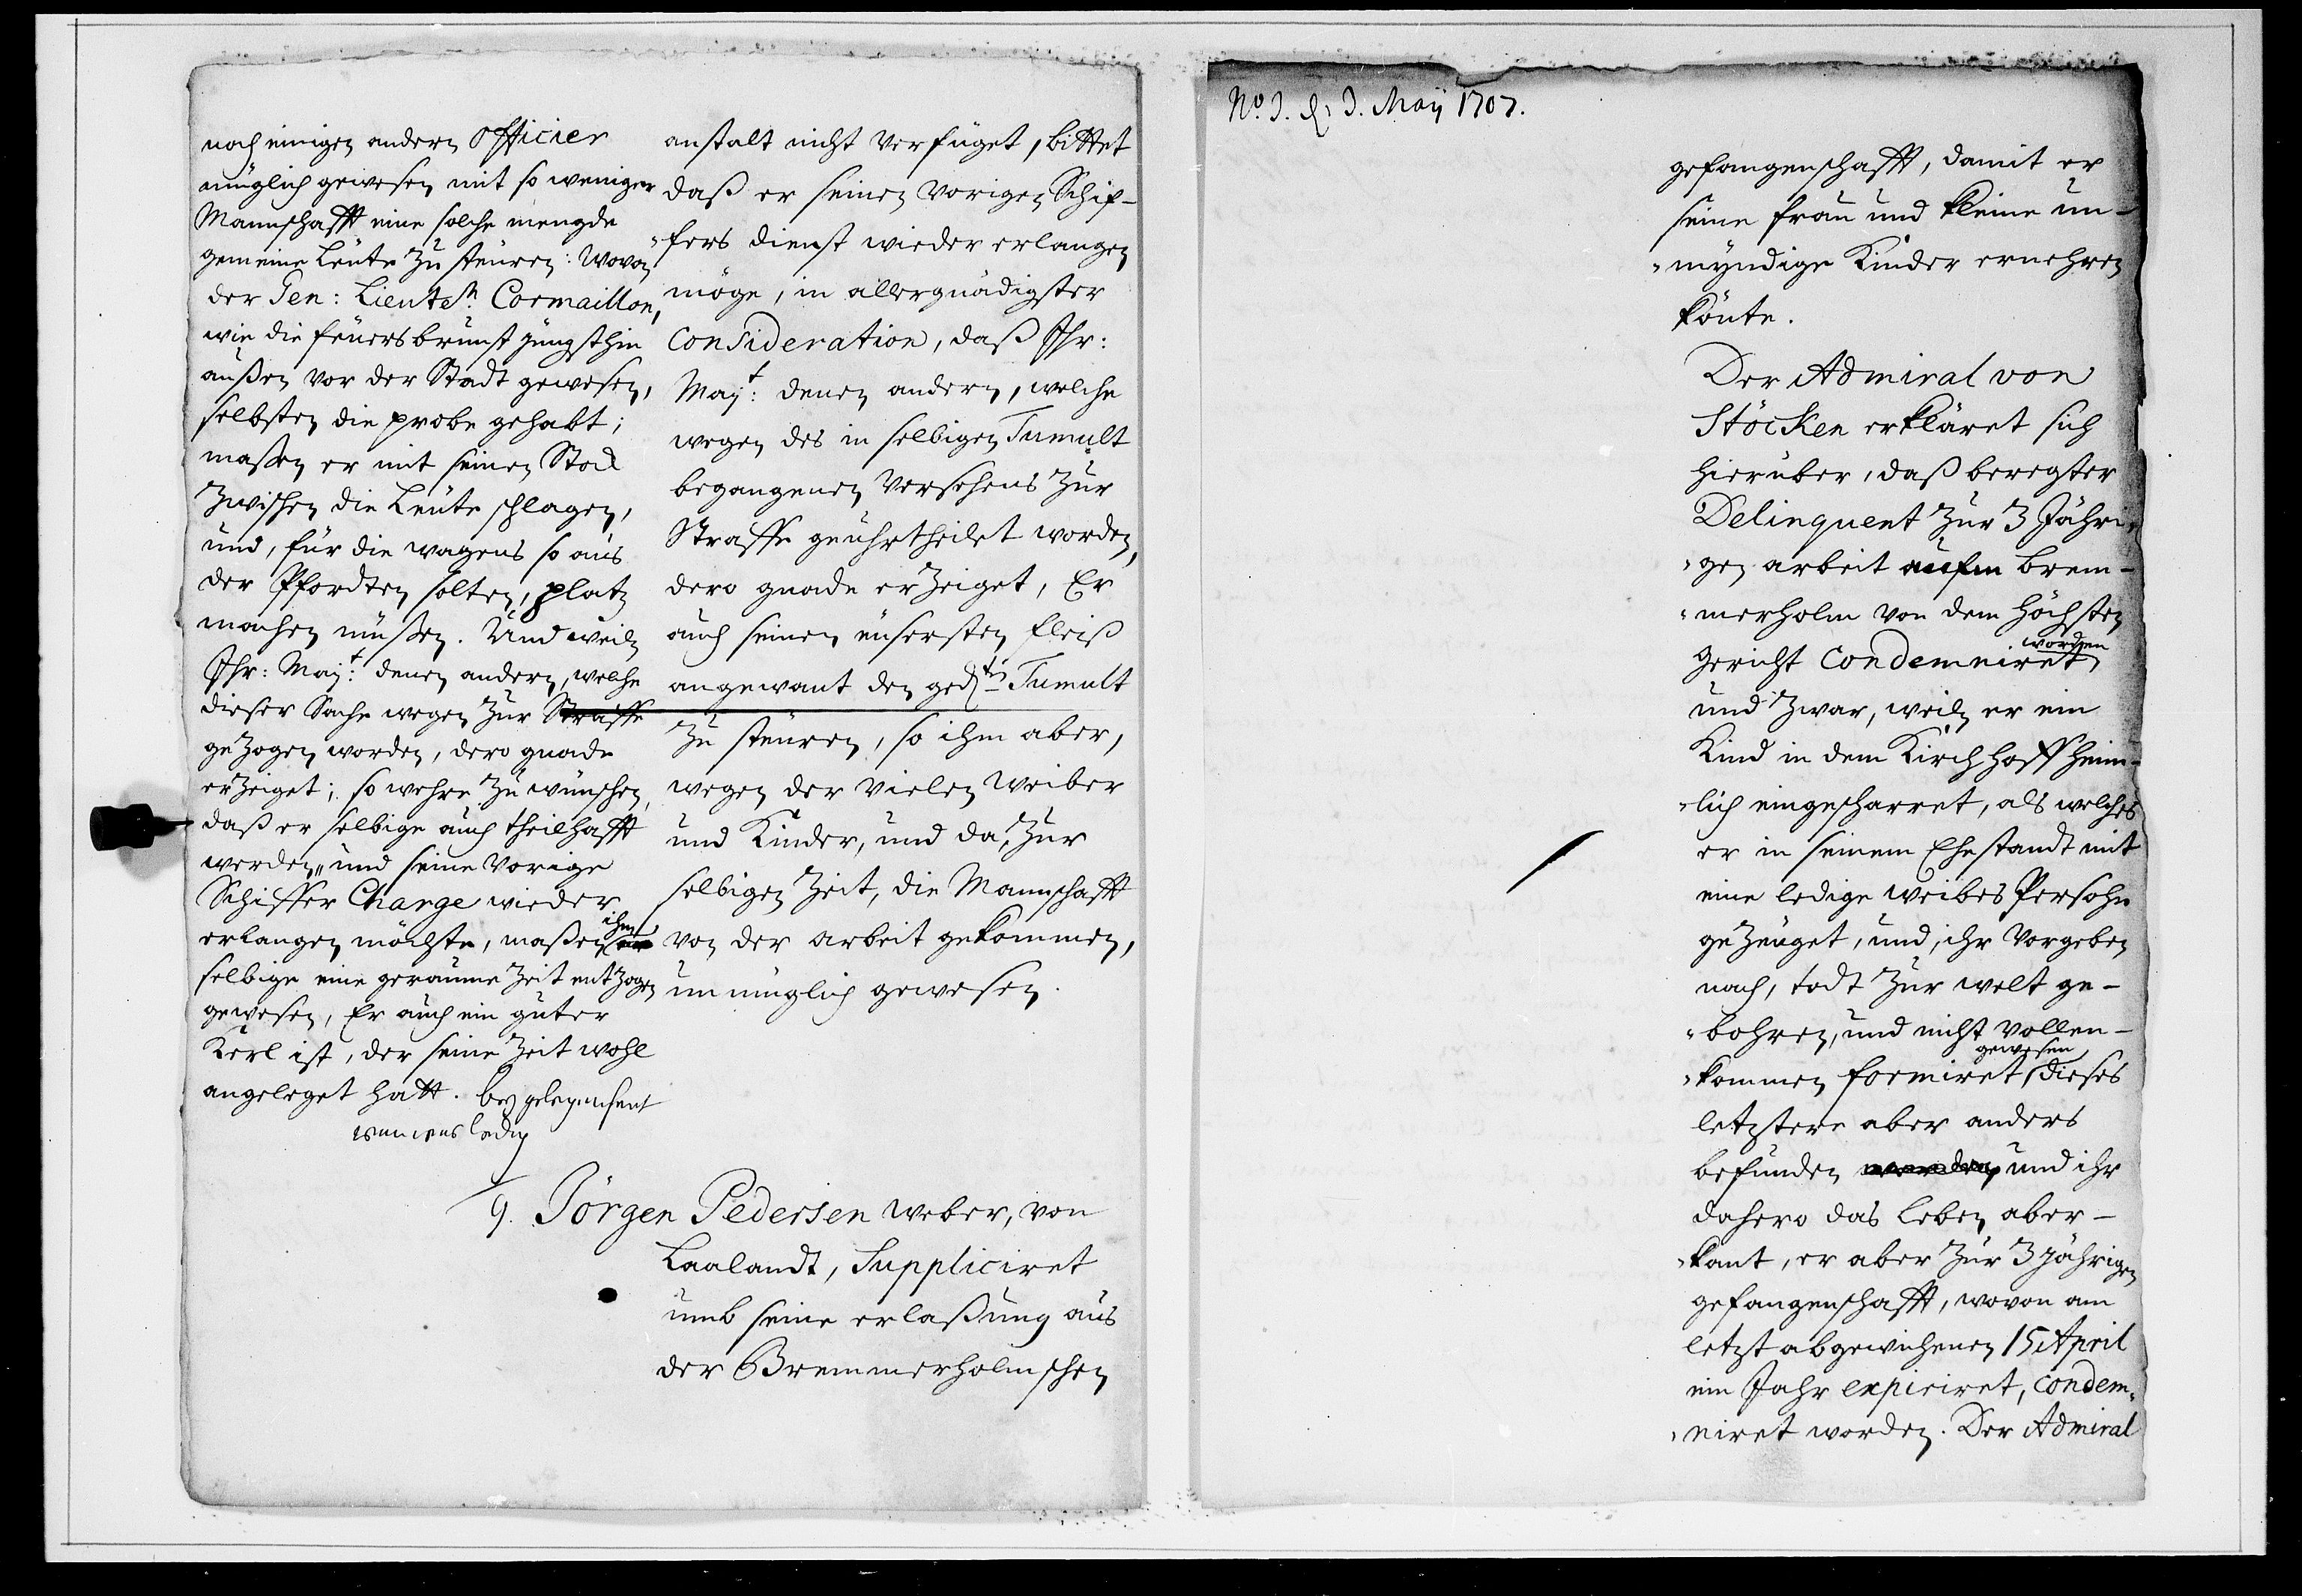 noch einigen andern Officier
müglich gewesen mit so weniger
Mannschafft eine solche mengde
gemeine Leüte zu steüren: Wovon
der Gen: Lieutn: Cormaillon,
wie die feüersbrunst jüngsthin
außen vor der Stadt gewesen,
selbsten die probe gehabt;
maßen er mit seinen Stock
zwischen die Leüte schlagen,
und, für die wagens so aus
der Pfordten solten, platz
machen müßen. Und weiln
Ihr: Mayt: denen andern, welche
dieser Sache wegen zur Straffe
gezogen worden, dero gnade
erzeiget; so wehre zu wünschen,
daß er selbige auch theilhafft
werden, und seine vorige
Schiffer Charge wieder
erlangen möchte, maßen ihm
selbige eine geraume Zeit entzogen
gewesen, Er auch ein guter
Kerl ist, der seine Zeit wohl
angeleget hatt. bey gelegenheit
wenn was ledig
anstalt nicht verfüget, bittet
daß er seinen vorigen Schif-
fers dienst wieder erlangen
möge, in allergnädigster
Consideration, daß Ihr:
Mayt: denen andern, welche
wegen des in selbigen Tumult
begangenen Versehens zur
Straffe geuhrtheilet worden,
dero gnade erzeiget, Er
auch seinen eüsersten fleiß
angewant den gedten Tumult
zu steüren, so ihm aber,
wegen der vielen Weiber
und Kinder, und da, zur
selbigen Zeit, die Mannschafft
von der arbeit gekommen,
unmüglich gewesen.
9. Jörgen Pedersen Weber, von
Laalandt, Suppliciret
umb seine erlaßung aus
der Bremmerholmschen
No. 3. d. 3. Maij 1707.
gefangenschafft, damit er
seine frau und kleine un-
myndige Kinder ernehren
könte.
Der Admiral von
Stöcken erkläret sich
hierüber, daß beregter
Delinquent zur 3 Jähri-
gen arbeit aufm Brem-
merholm von dem Höchsten
worden
gericht Condemniret,
und zwar, weiln er ein
Kind in dem Kirchhoff heim-
lich eingescharret, als welches
er in seinem Ehestandt mit
eine ledige Weibes Persohn
gezeüget, und, ihr Vorgeben
nach, todt zur welt ge-
bohren, und nicht vollen-
gewesen
kommen formiret, dieses
letztere aber anders
befunden worden und ihr
dahero das Leben aber-
kant, er aber zur 3 Jährigen
gefangenschafft, wovon am
letzt abgewichenen 15 April
ein Jahr expiriret, Condem-
niret worden. Der Admiral